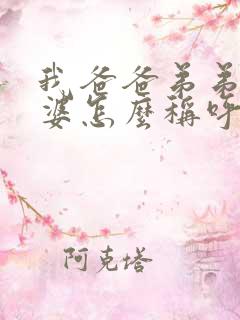 我爸爸弟弟
婆怎麼稱呼
阿克塔